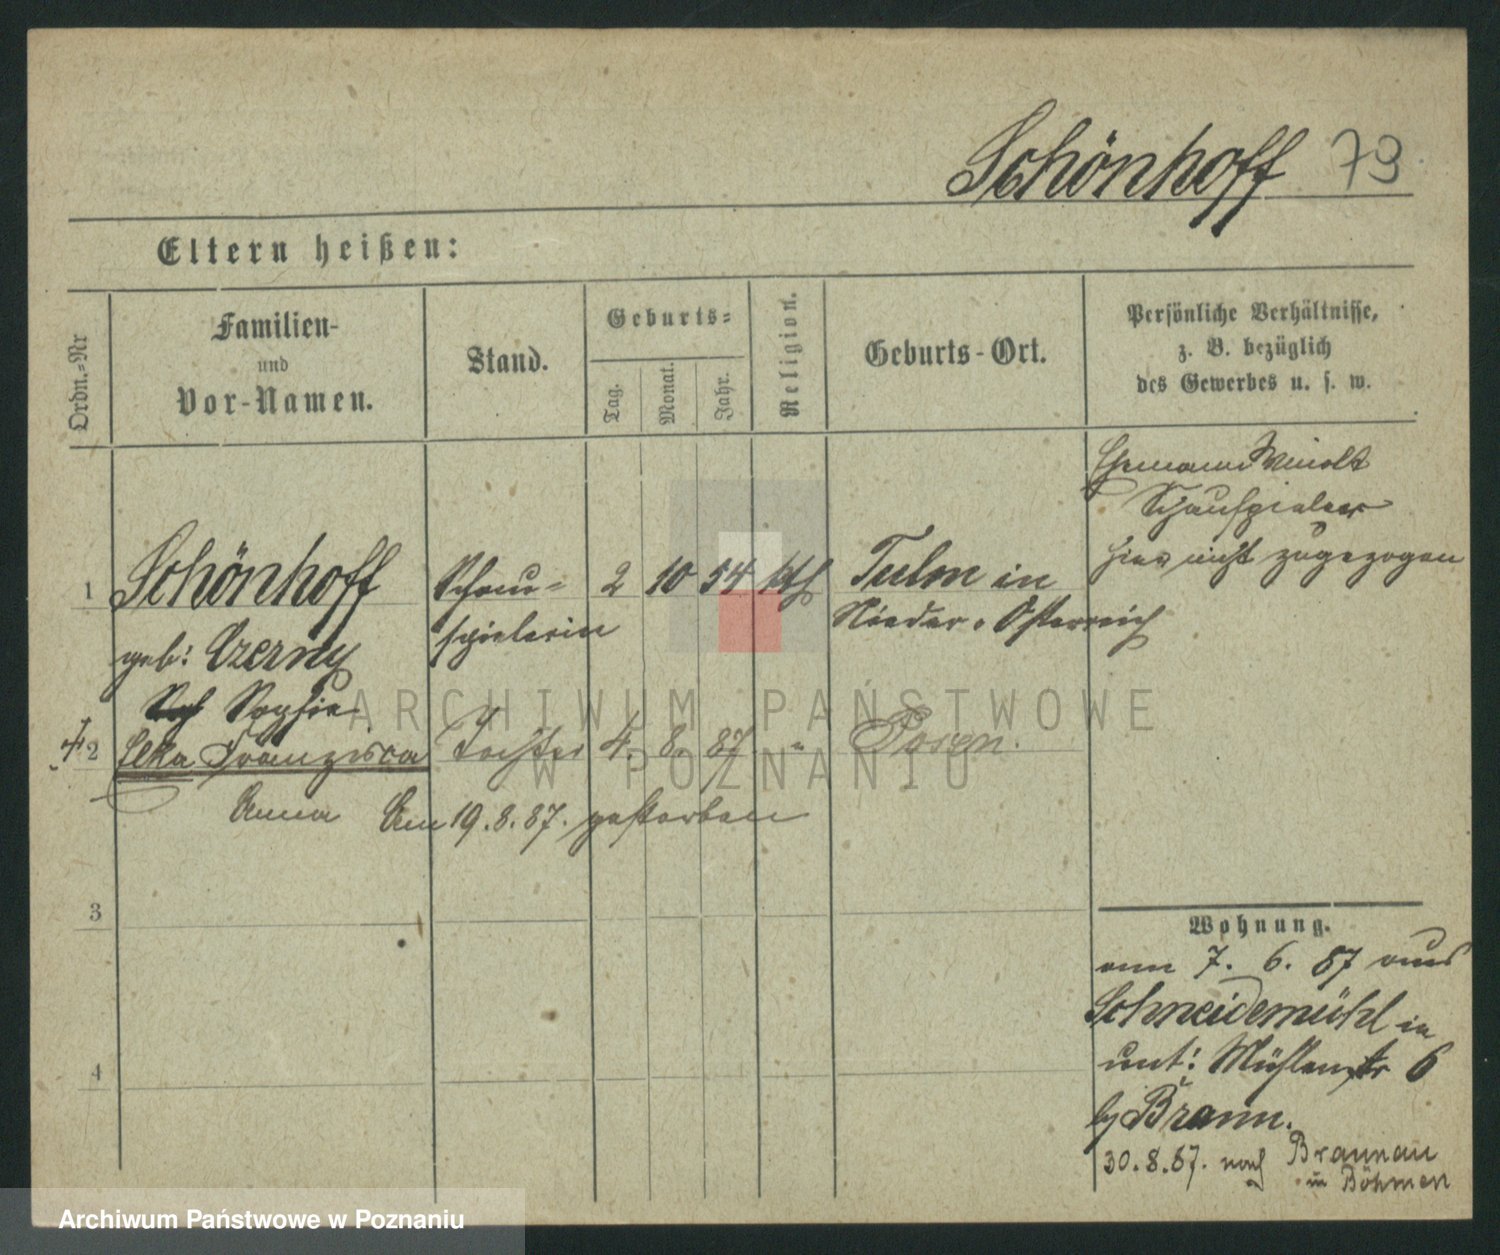 Schönhoff 79
Eltern heißen:
Ordn.-Nr
Familien-
und
Vor-Namen.
Stand.
Geburts-
Tag.
Monat.
Jahr.
Religion.
Geburts-Ort.
Persönliche Verhältnisse,
z. B. bezüglich
des Gewerbes u. s. w.
Ehemann
Schauspieler
hier nicht zugezogen
1 Schönhoff Schau- 2 10 54 kth Tuln in
spielerin Nieder-Österreich
geb: Czerny
Sophie
2 Elka Franziska Tochter 4. 8. 87. " Posen.
Anna Am 19.8.87. gestorben
3
4
Wohnung.
am 7. 6. 87 aus
Schneidemühl in
unt: Mühlenstr 6
bj Brann.
30.8.87. nach Braunau
in Böhmen
ARCHIWUM PAŃSTWOWE
W POZNANIU
Archiwum Państwowe w Poznaniu